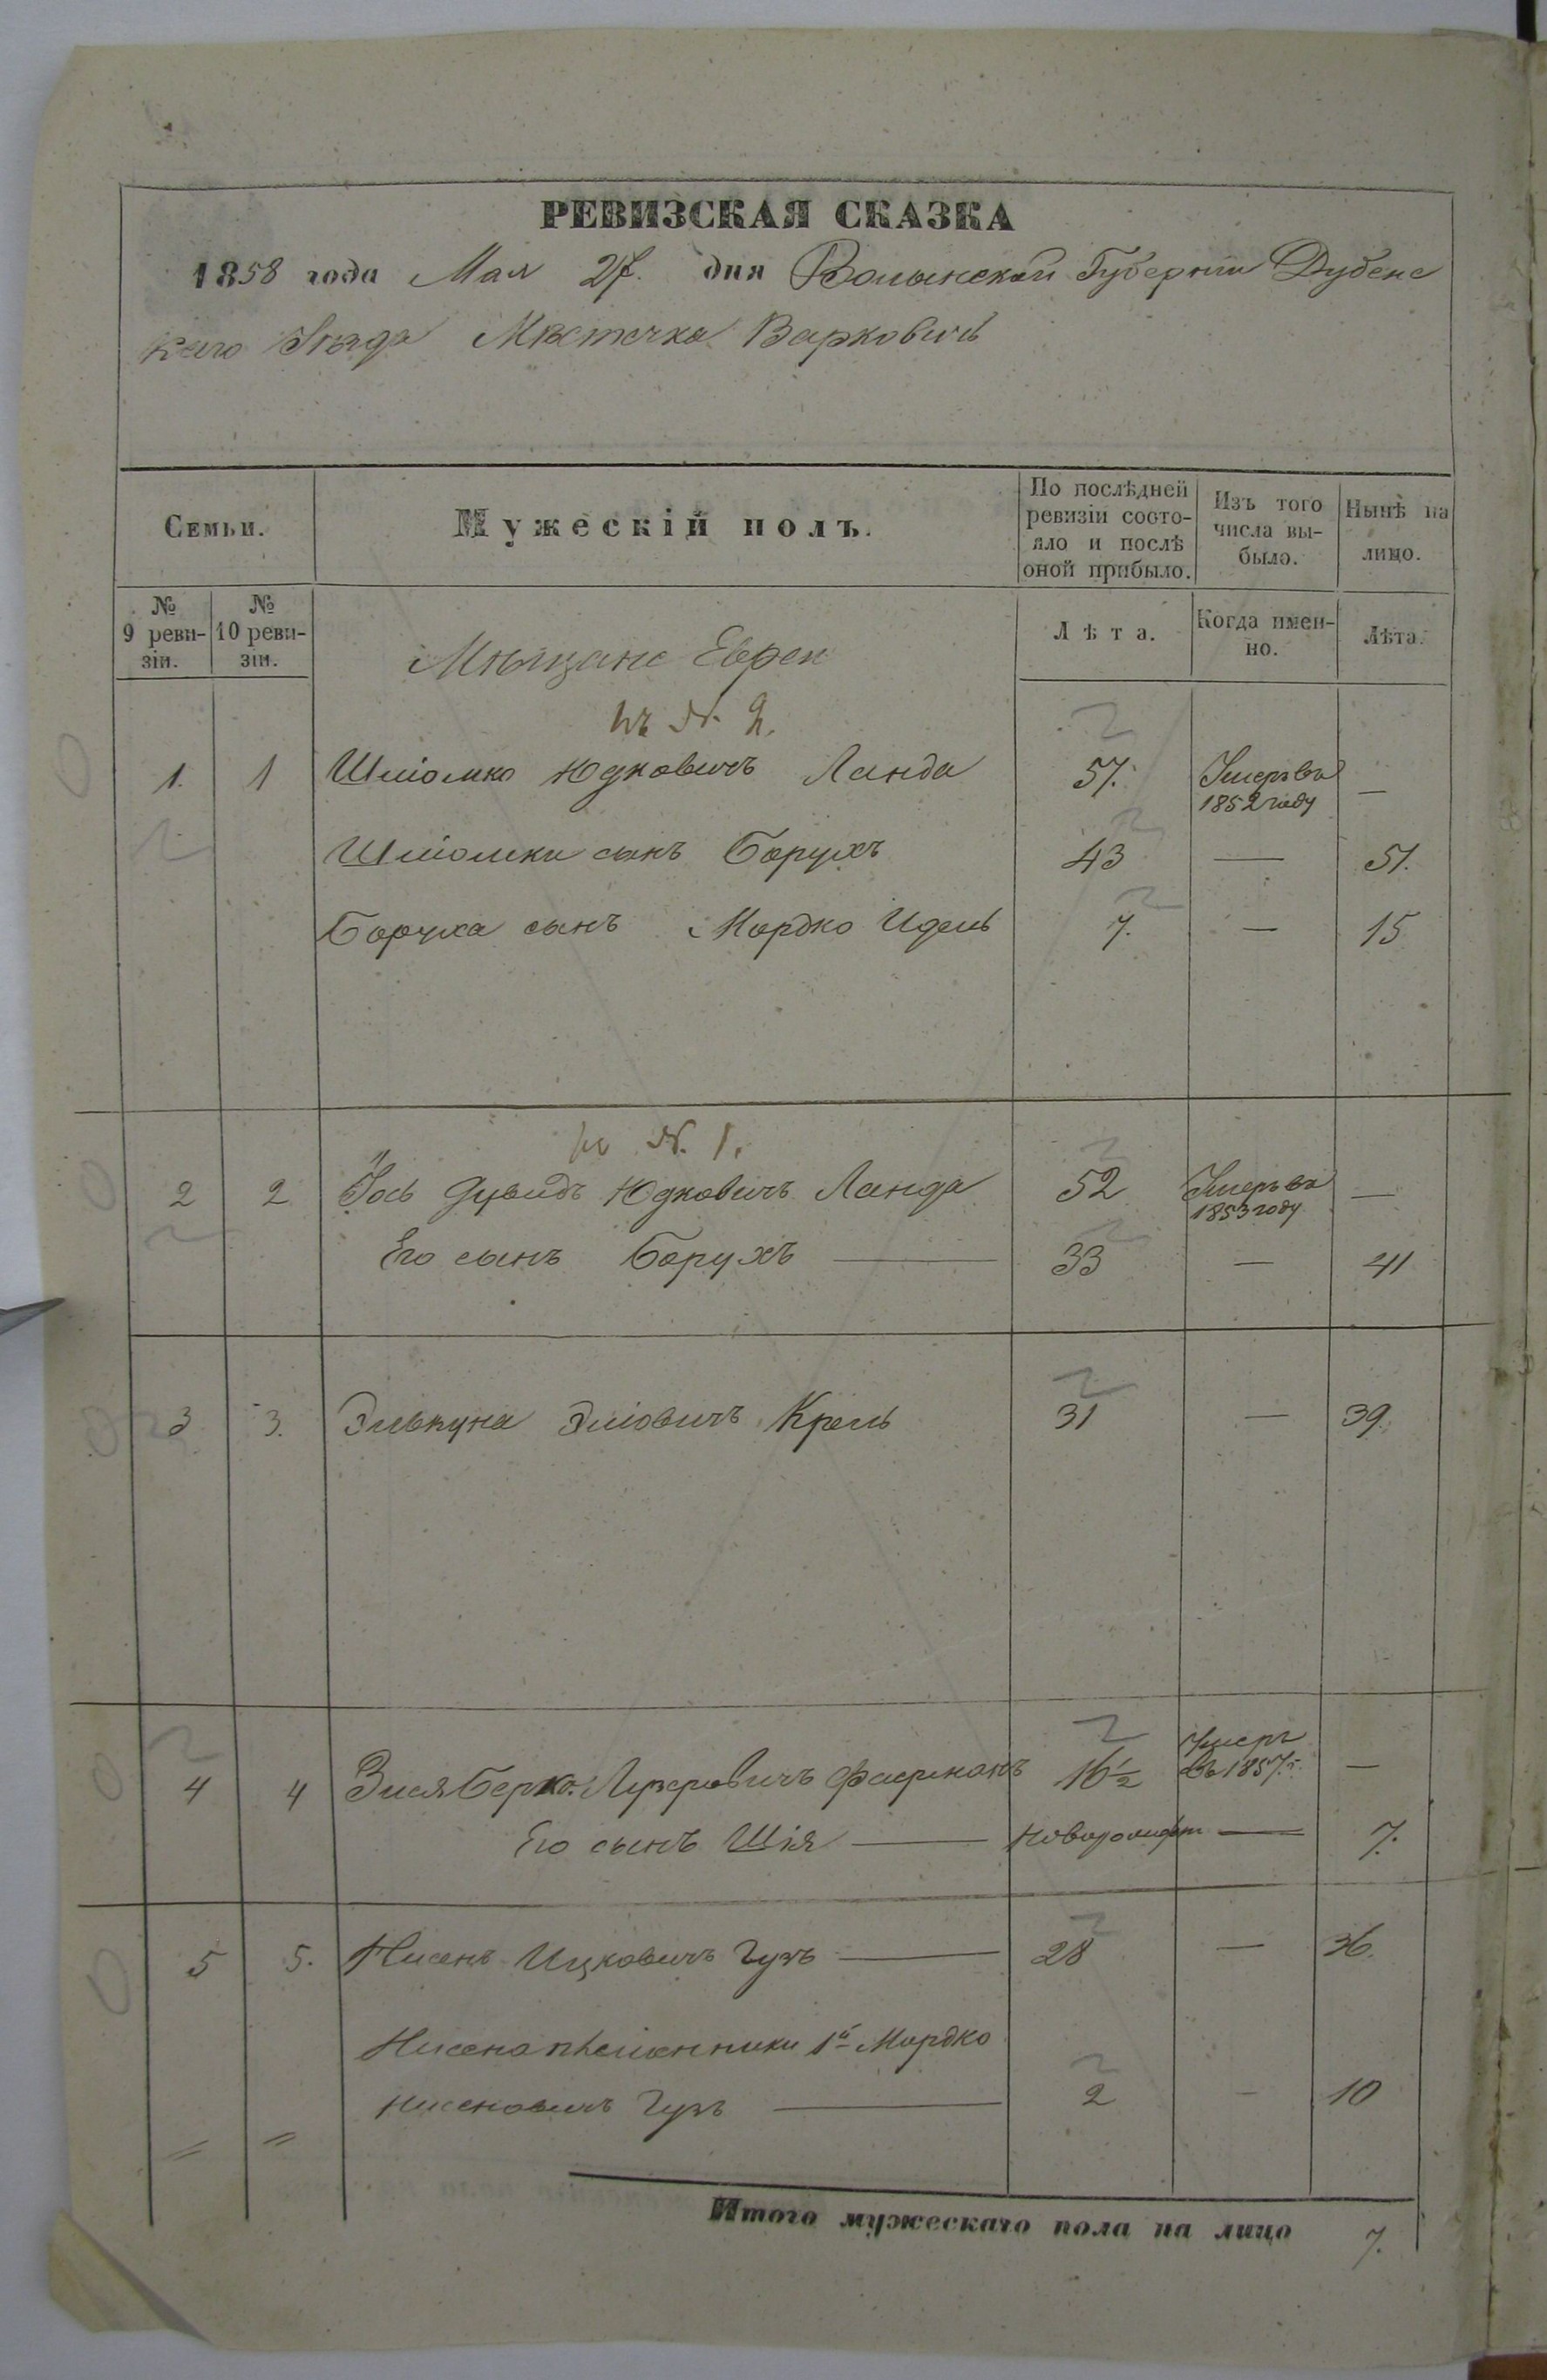 РЕВИЗСКАЯ СКАЗКА
1858 года Мая 27. дня Волынской Губернии Дубенс
каго Уѣзда Мѣстечка Варковичъ
Семьи.
Мужескій полъ.
По послѣдней
ревизіи состо-
яло и послѣ
оной прибыло.
Изъ того
числа вы-
было.
Нынѣ на
лицо.
№
9 реви-
зіи.
№
10 реви-
зіи.
Лѣта.
Когда имен-
но.
Лѣта.
Мѣщане Евреи
къ N. 2.
1. 1 Шліомко Юдковичъ Ланда 57. Умеръ въ —
1852 году
Шліомки сынъ Борухъ 43 — 51.
Боруха сынъ Мордко Идель 7. — 15
къ N. 1.
2 2 Іось Дувидъ Юдковичъ Ланда 52 Умеръ въ —
1853 году
Его сынъ Борухъ — 33 — 41
3 3. Элькуна Эліовичъ Крель 31 — 39.
4 4 Зися Берко Лузеровичъ Фаерманъ 16½ Умеръ
въ 1857 г. —
Его сынъ Шія — новорожден — 7.
5 5. Нисенъ Ицковичъ Гузъ — 28 — 36.
Нисена племянники 1й Мордко
Нисеновичъ Гузъ — 2 — 10
Итого мужескаго пола на лицо 7.